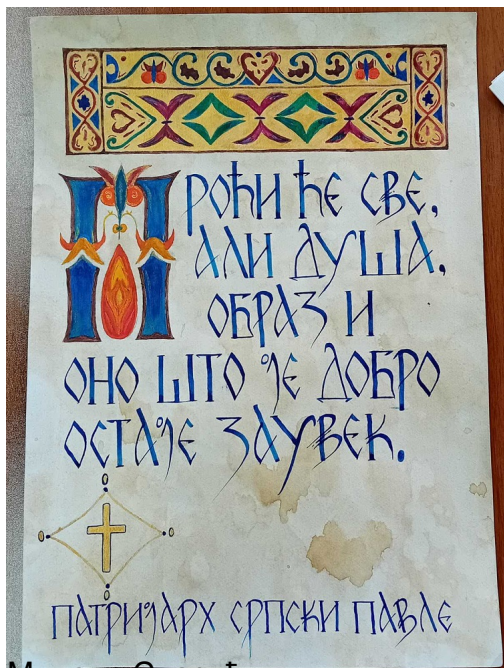 Проћи ће све,
али душа,
образ и
оно што је добро
остаје заувек.
Патријарх српски Павле